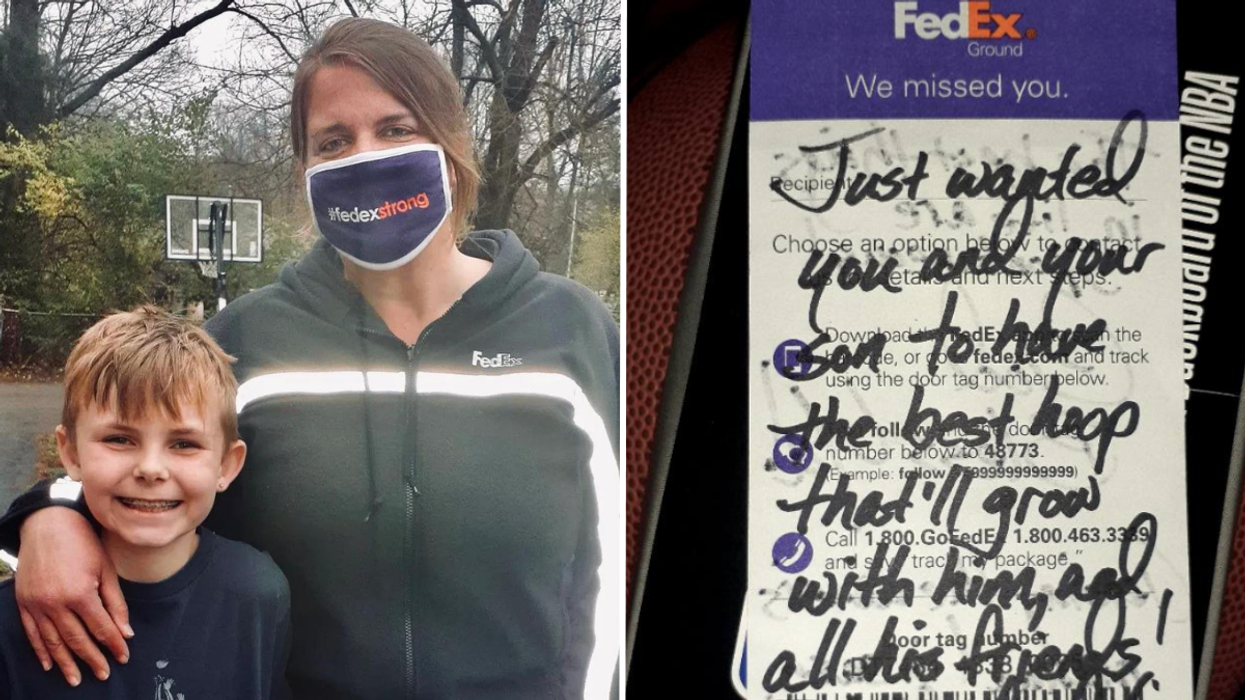 #fedexstrong
FedEx
FedEx
Ground
We missed you.
Just wanted
Recipient
Choose an option below to contact
you and your
us for details and next steps.
son to have
Download the FedEx app, the
barcode, or go to fedex.com and track
using the door tag number below.
the best hoop
follow and the door tag
number below to 48773.
(Example: follow 999999999999)
that'll grow
Call 1.800.GoFedEx 1.800.463.3339
and say "track my package."
with him, and
Door tag number
all his friends!
Backboard of the NBA